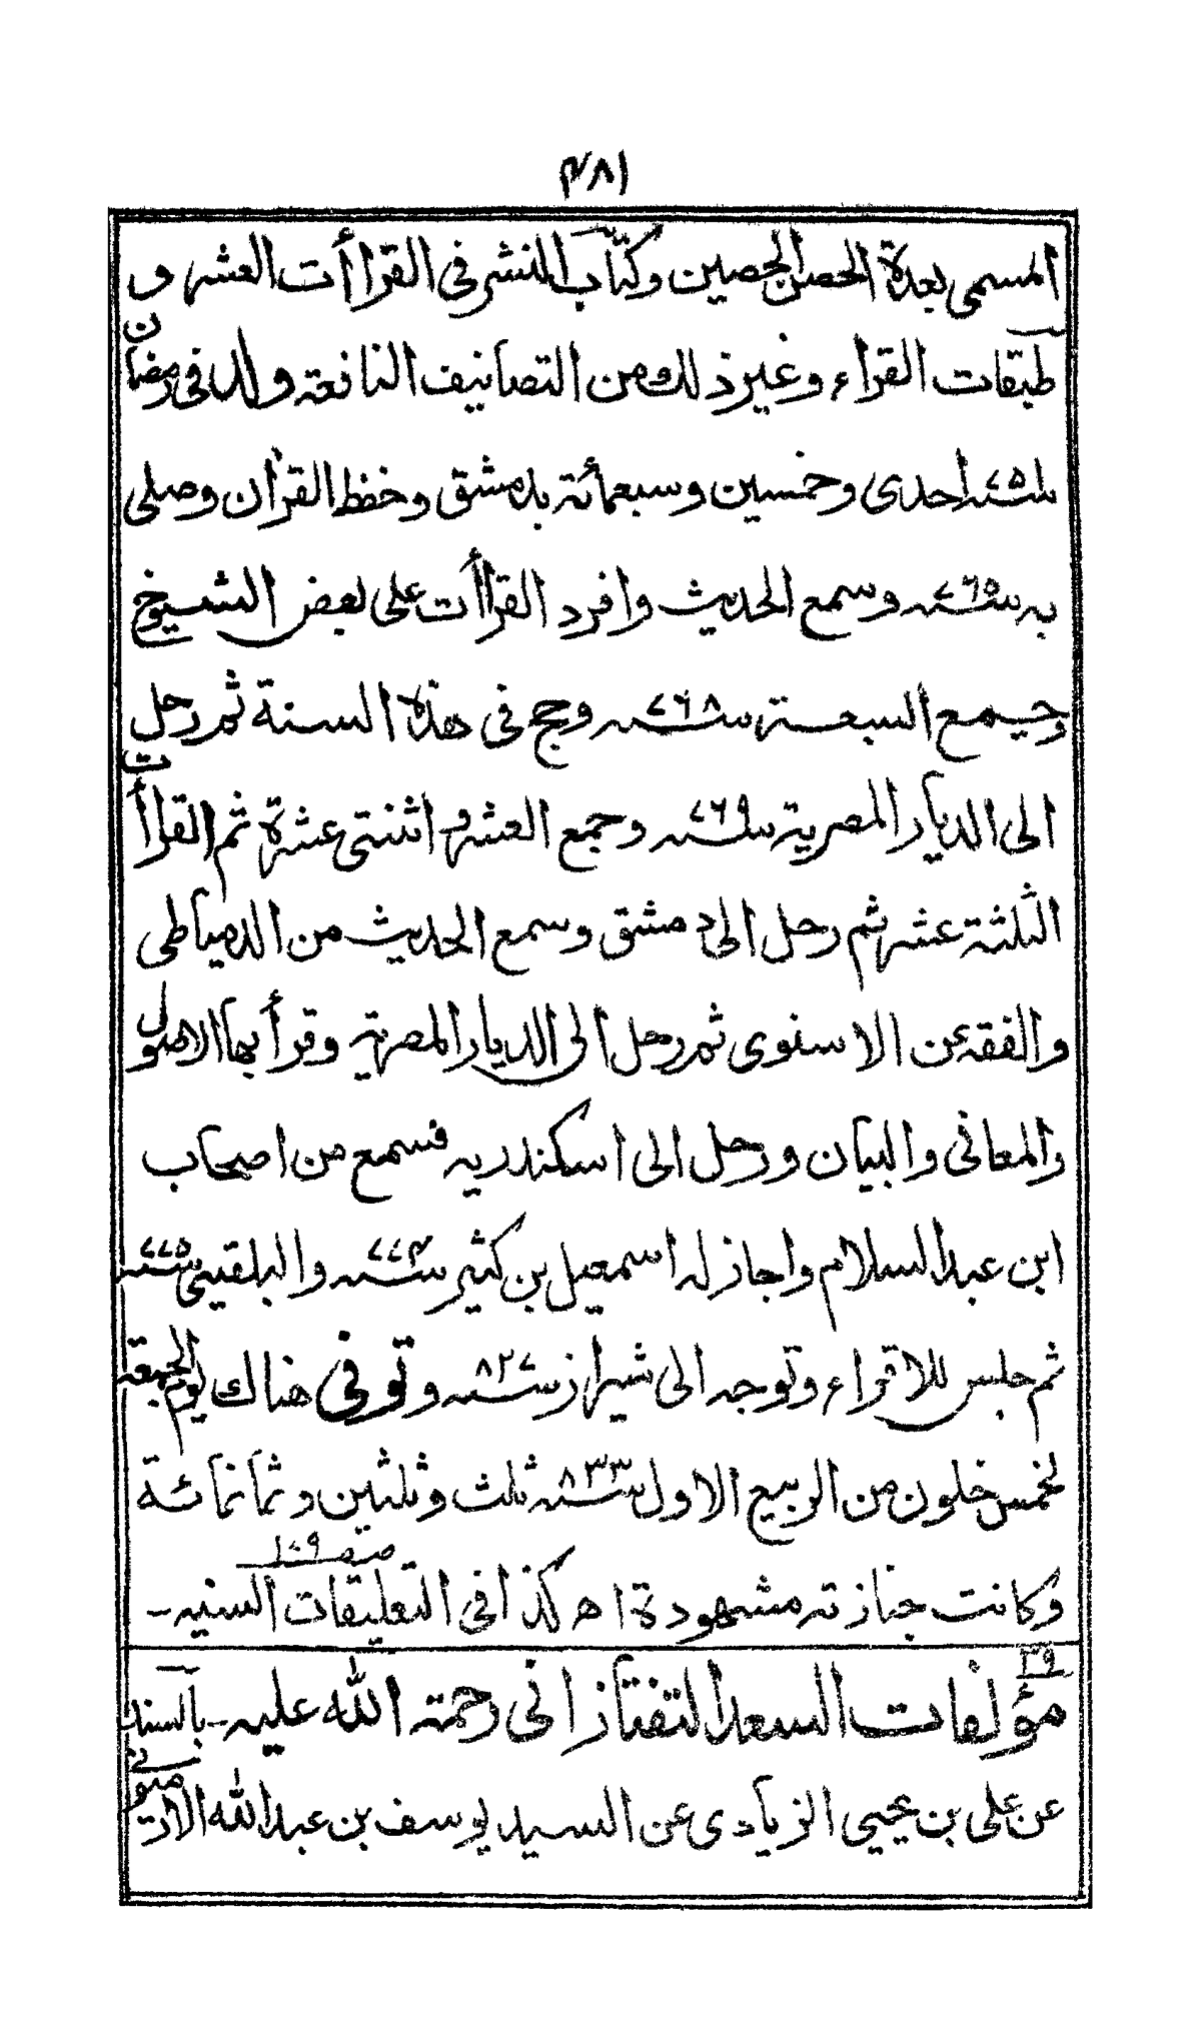 ۴۸۱
المسمى بعدة الحصن الحصين وكتاب النشر فى القراأت العشر و
طبقات القراء وغير ذلك من التصانيف النافعة ولد فى رمضان
سنة ۷۵۱ احدى وخمسين وسبعمائة بدمشق وحفظ القرأن وصلى
به سنة ۷۶۵ وسمع الحديث وافرد القراأت على بعض الشيوخ
وجمع السبعة سنة ۷۶۸ وحج فى هذه السنة ثم رحل
الى الديار المصرية سنة ۷۶۹ وجمع العشر و اثنتى عشرة ثم القراأت
الثلثة عشر ثم رحل الى دمشق وسمع الحديث من الدمياطى
والفقه عن الاسنوى ثم رحل الى الديار المصرية وقرأ بها الاصول
والمعانى والبيان ورحل الى اسكندريه فسمع من اصحاب
ابن عبد السلام واجاز له اسمعيل بن كثير سنة ۷۷۴ والبلقينى سنة ۷۷۵
ثم جلس للاقراء وتوجه الى شيراز سنة ۸۲۷ وتوفى هناك يوم الجمعة
لخمس خلون من الربيع الاول سنة ۸۳۳ ثلث وثلثين وثمانمائة
وكانت جنازته مشهودة اھ كذا فى التعليقات السنيه ـ صفـ ۱۰۹
۳۹ مؤلفات السعد التفتازانى رحمته الله عليه ـ بالسند
عن على بن يحيى الزيادى عن السيد يوسف بن عبد الله الارميونى